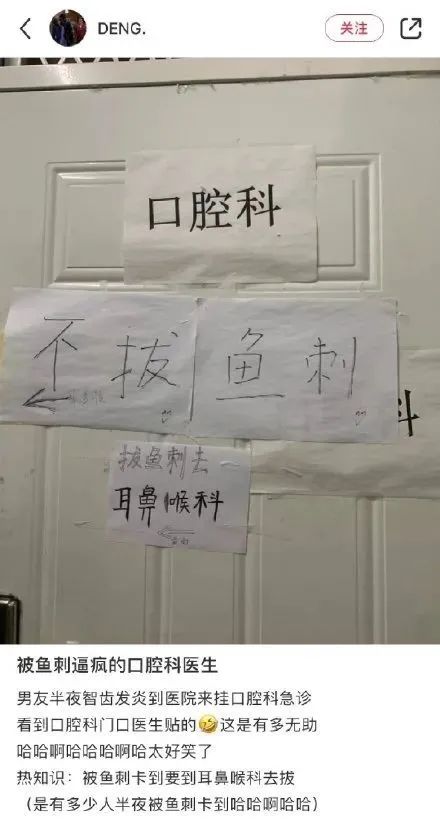 DENG.
关注
口腔科
不拔鱼刺
科
拔鱼刺去
耳鼻喉科
被鱼刺逼疯的口腔科医生
男友半夜智齿发炎到医院来挂口腔科急诊
看到口腔科门口医生贴的🤣这是有多无助
哈哈啊哈哈哈啊哈太好笑了
热知识：被鱼刺卡到要到耳鼻喉科去拔
（是有多少人半夜被鱼刺卡到哈哈啊哈哈）